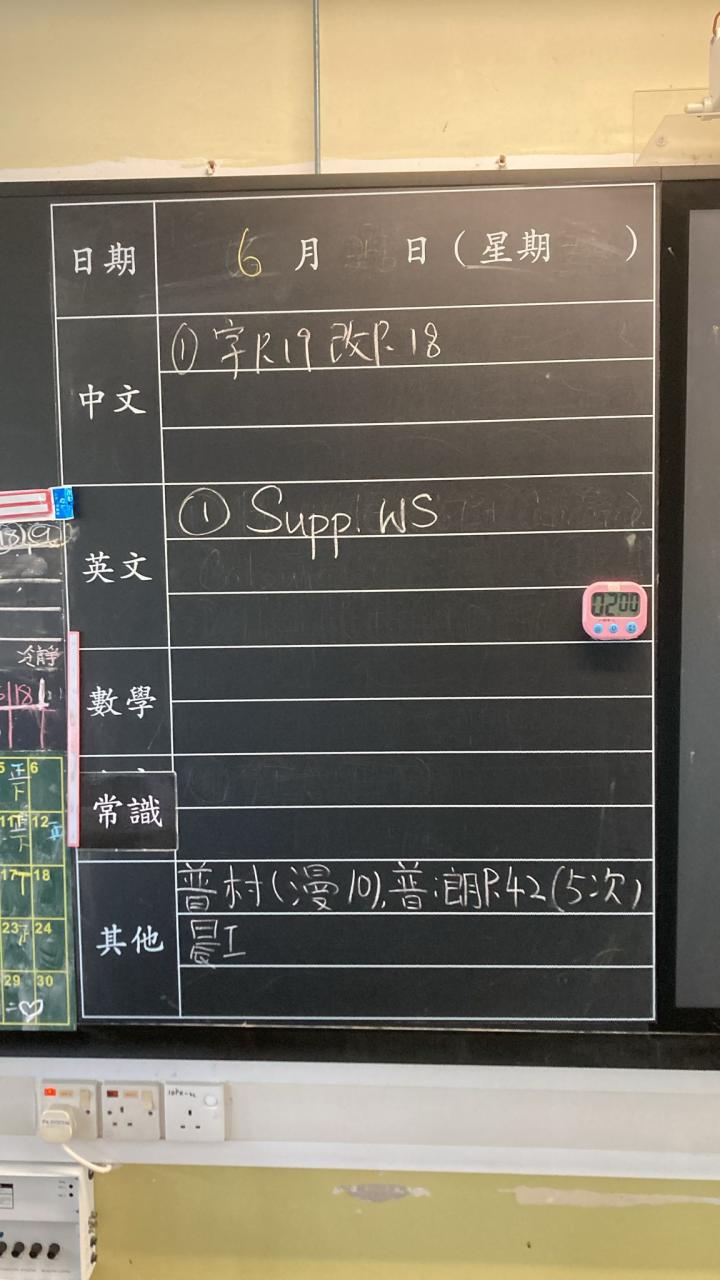 日期 6 月 日(星期 )
中文 ① 字P.19 改P.18
英文 ① Supp. WS
02 00
冷靜
數學
常識
普村(漫10), 普:朗P.42(5次)
其他
晨I
5 正下 6
12 正
17 18
23 24
29 30